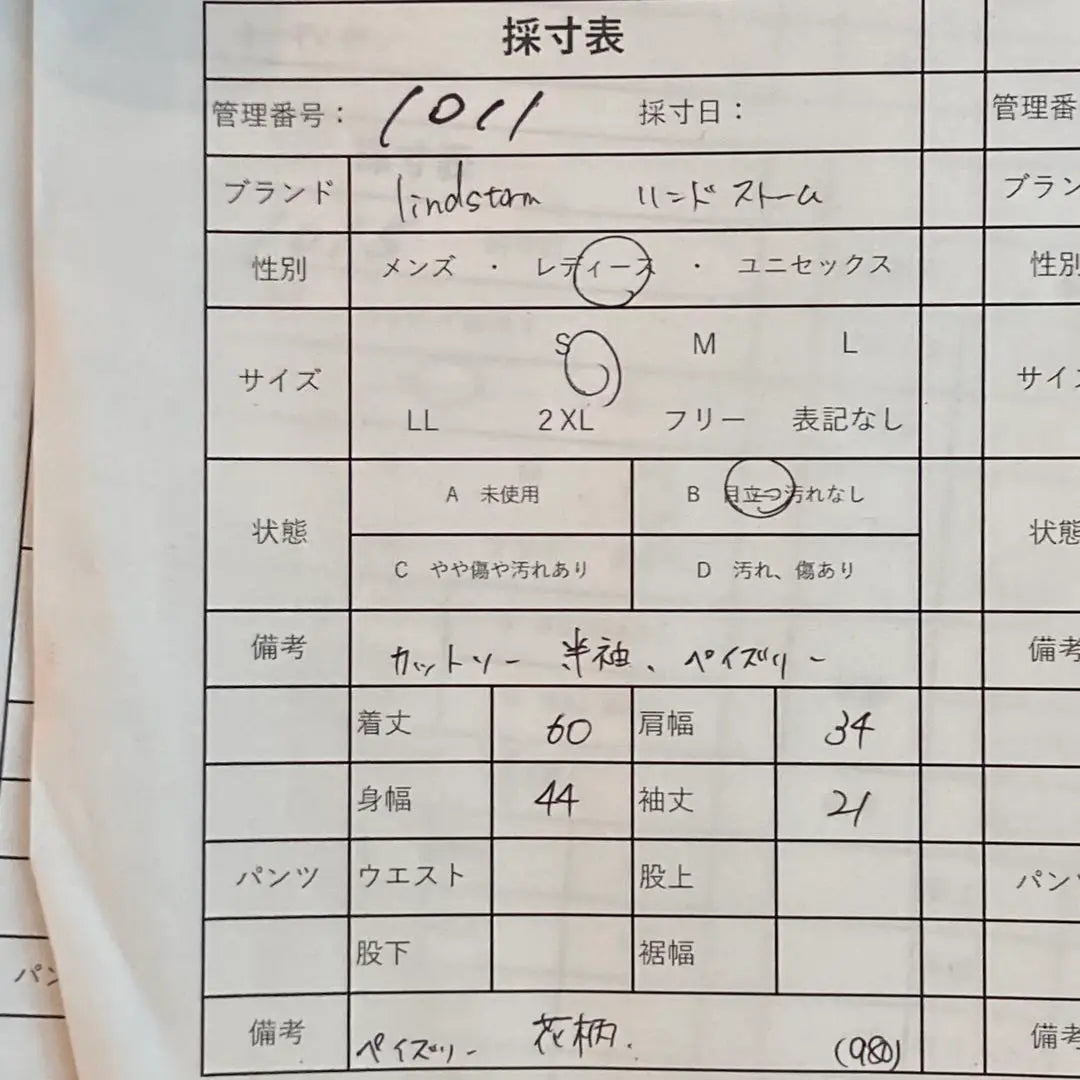 採寸表
管理番号： 1011 採寸日： 管理番
ブランド lindstorm リンドストーム ブラン
性別 メンズ ・ レディース ・ ユニセックス 性別
S M L
サイズ サイズ
LL 2XL フリー 表記なし
A 未使用 B 目立つ汚れなし
状態 状態
C やや傷や汚れあり D 汚れ、傷あり
備考 カットソー 半袖、ペイズリー 備考
着丈 60 肩幅 34
身幅 44 袖丈 21
パンツ ウエスト 股上 パンツ
パン 股下 裾幅
備考 ペイズリー 花柄. (980) 備考